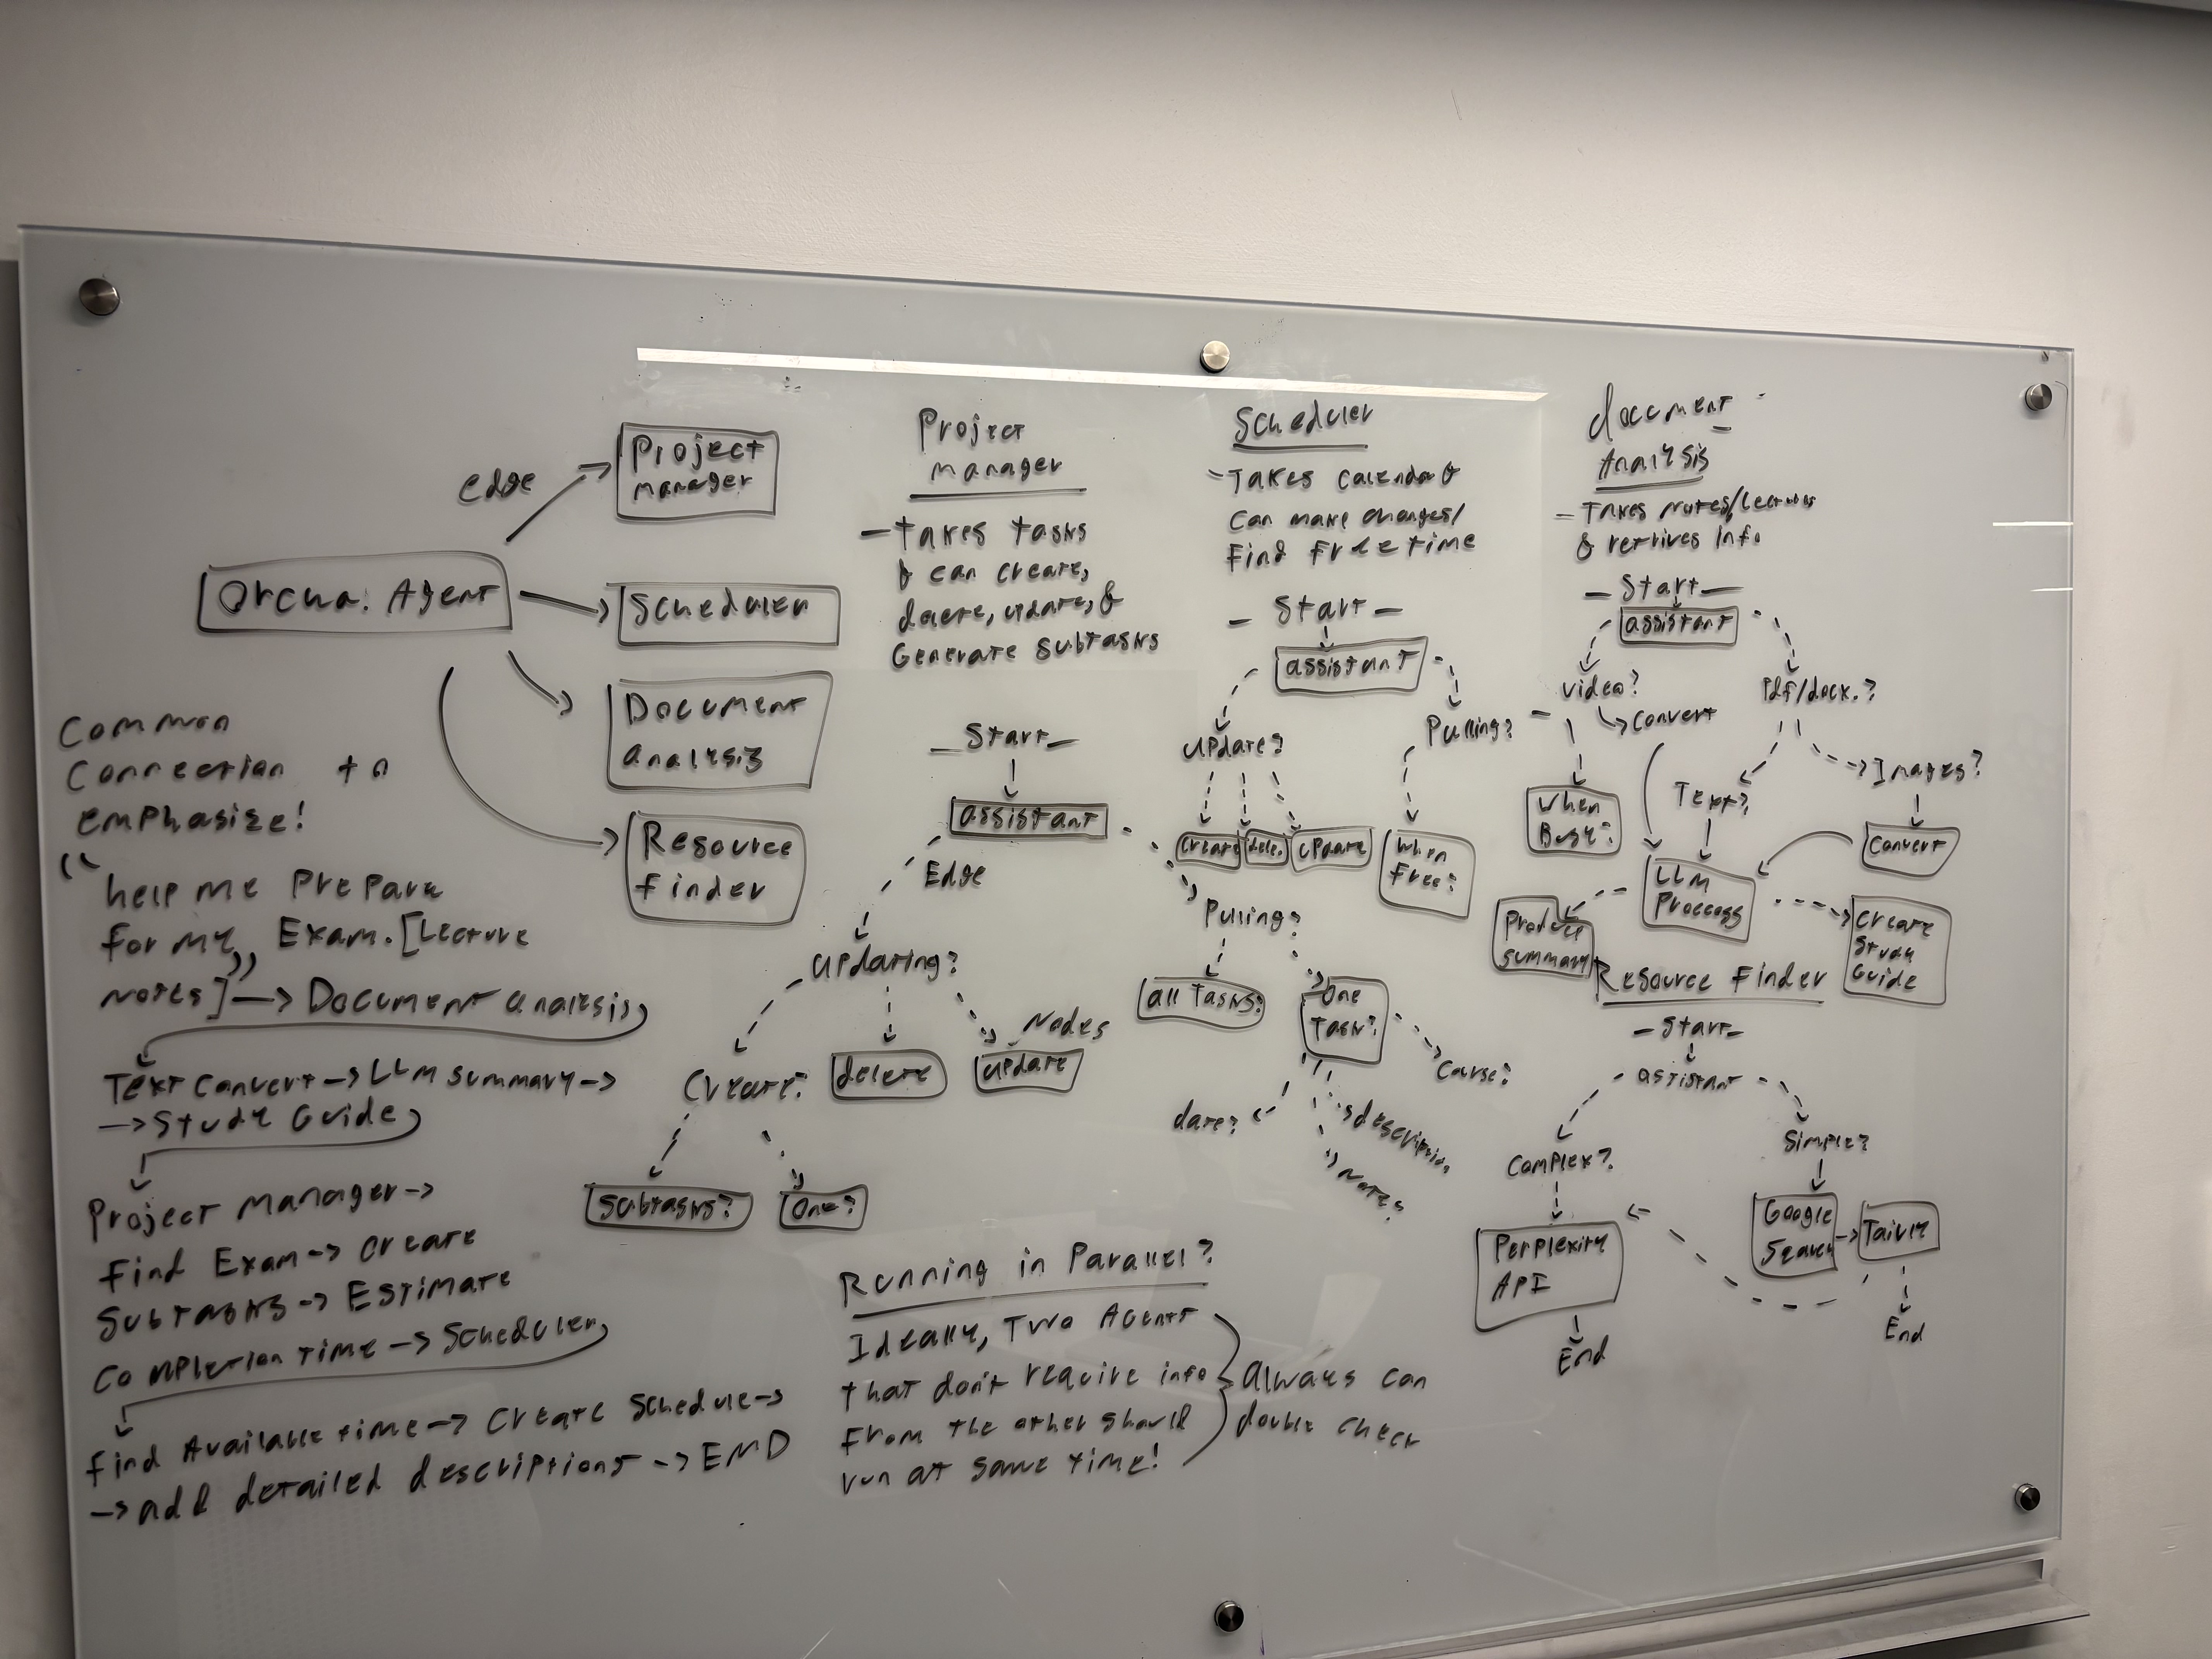 edge
Project
manager
Orcha. Agent
Scheduler
Document
analysis
Resource
finder
Common
Connection to
emphasize!
"help me prepare
for my Exam. [Lecture
notes]" → Document analysis
Text convert → LLM summary →
→ Study Guide
Project manager →
find Exam → create
Subtasks → Estimate
Completion time → Scheduler
find Available time → Create Schedule →
→ add detailed descriptions → END
Project
manager
- takes tasks
& can create,
delete, update, &
Generate subtasks
Start
assistant
Edge
updating?
Create?
delete
Nodes
update
Subtasks?
One?
Pulling?
all Tasks?
One
Task?
Course?
date?
description
Notes?
Running in Parallel?
Ideally, Two Agents
that don't require info
from the other should
run at same time!
Always can
double check
Scheduler
- Takes calendar &
can make changes/
Find free time
- Start -
assistant
update?
Create
dele.
update
Pulling?
When
Free?
When
Busy?
document
Analysis
- Takes notes/lectures
& retrives info
- Start -
assistant
video?
→ convert
Pdf/dock.?
Text?
Images?
Convert
LLM
Proccess
Produce
summary
Create
Study
Guide
Resource Finder
- Start -
assistant
Complex?
Simple?
Perplexity
API
Google
Tavily
End
End